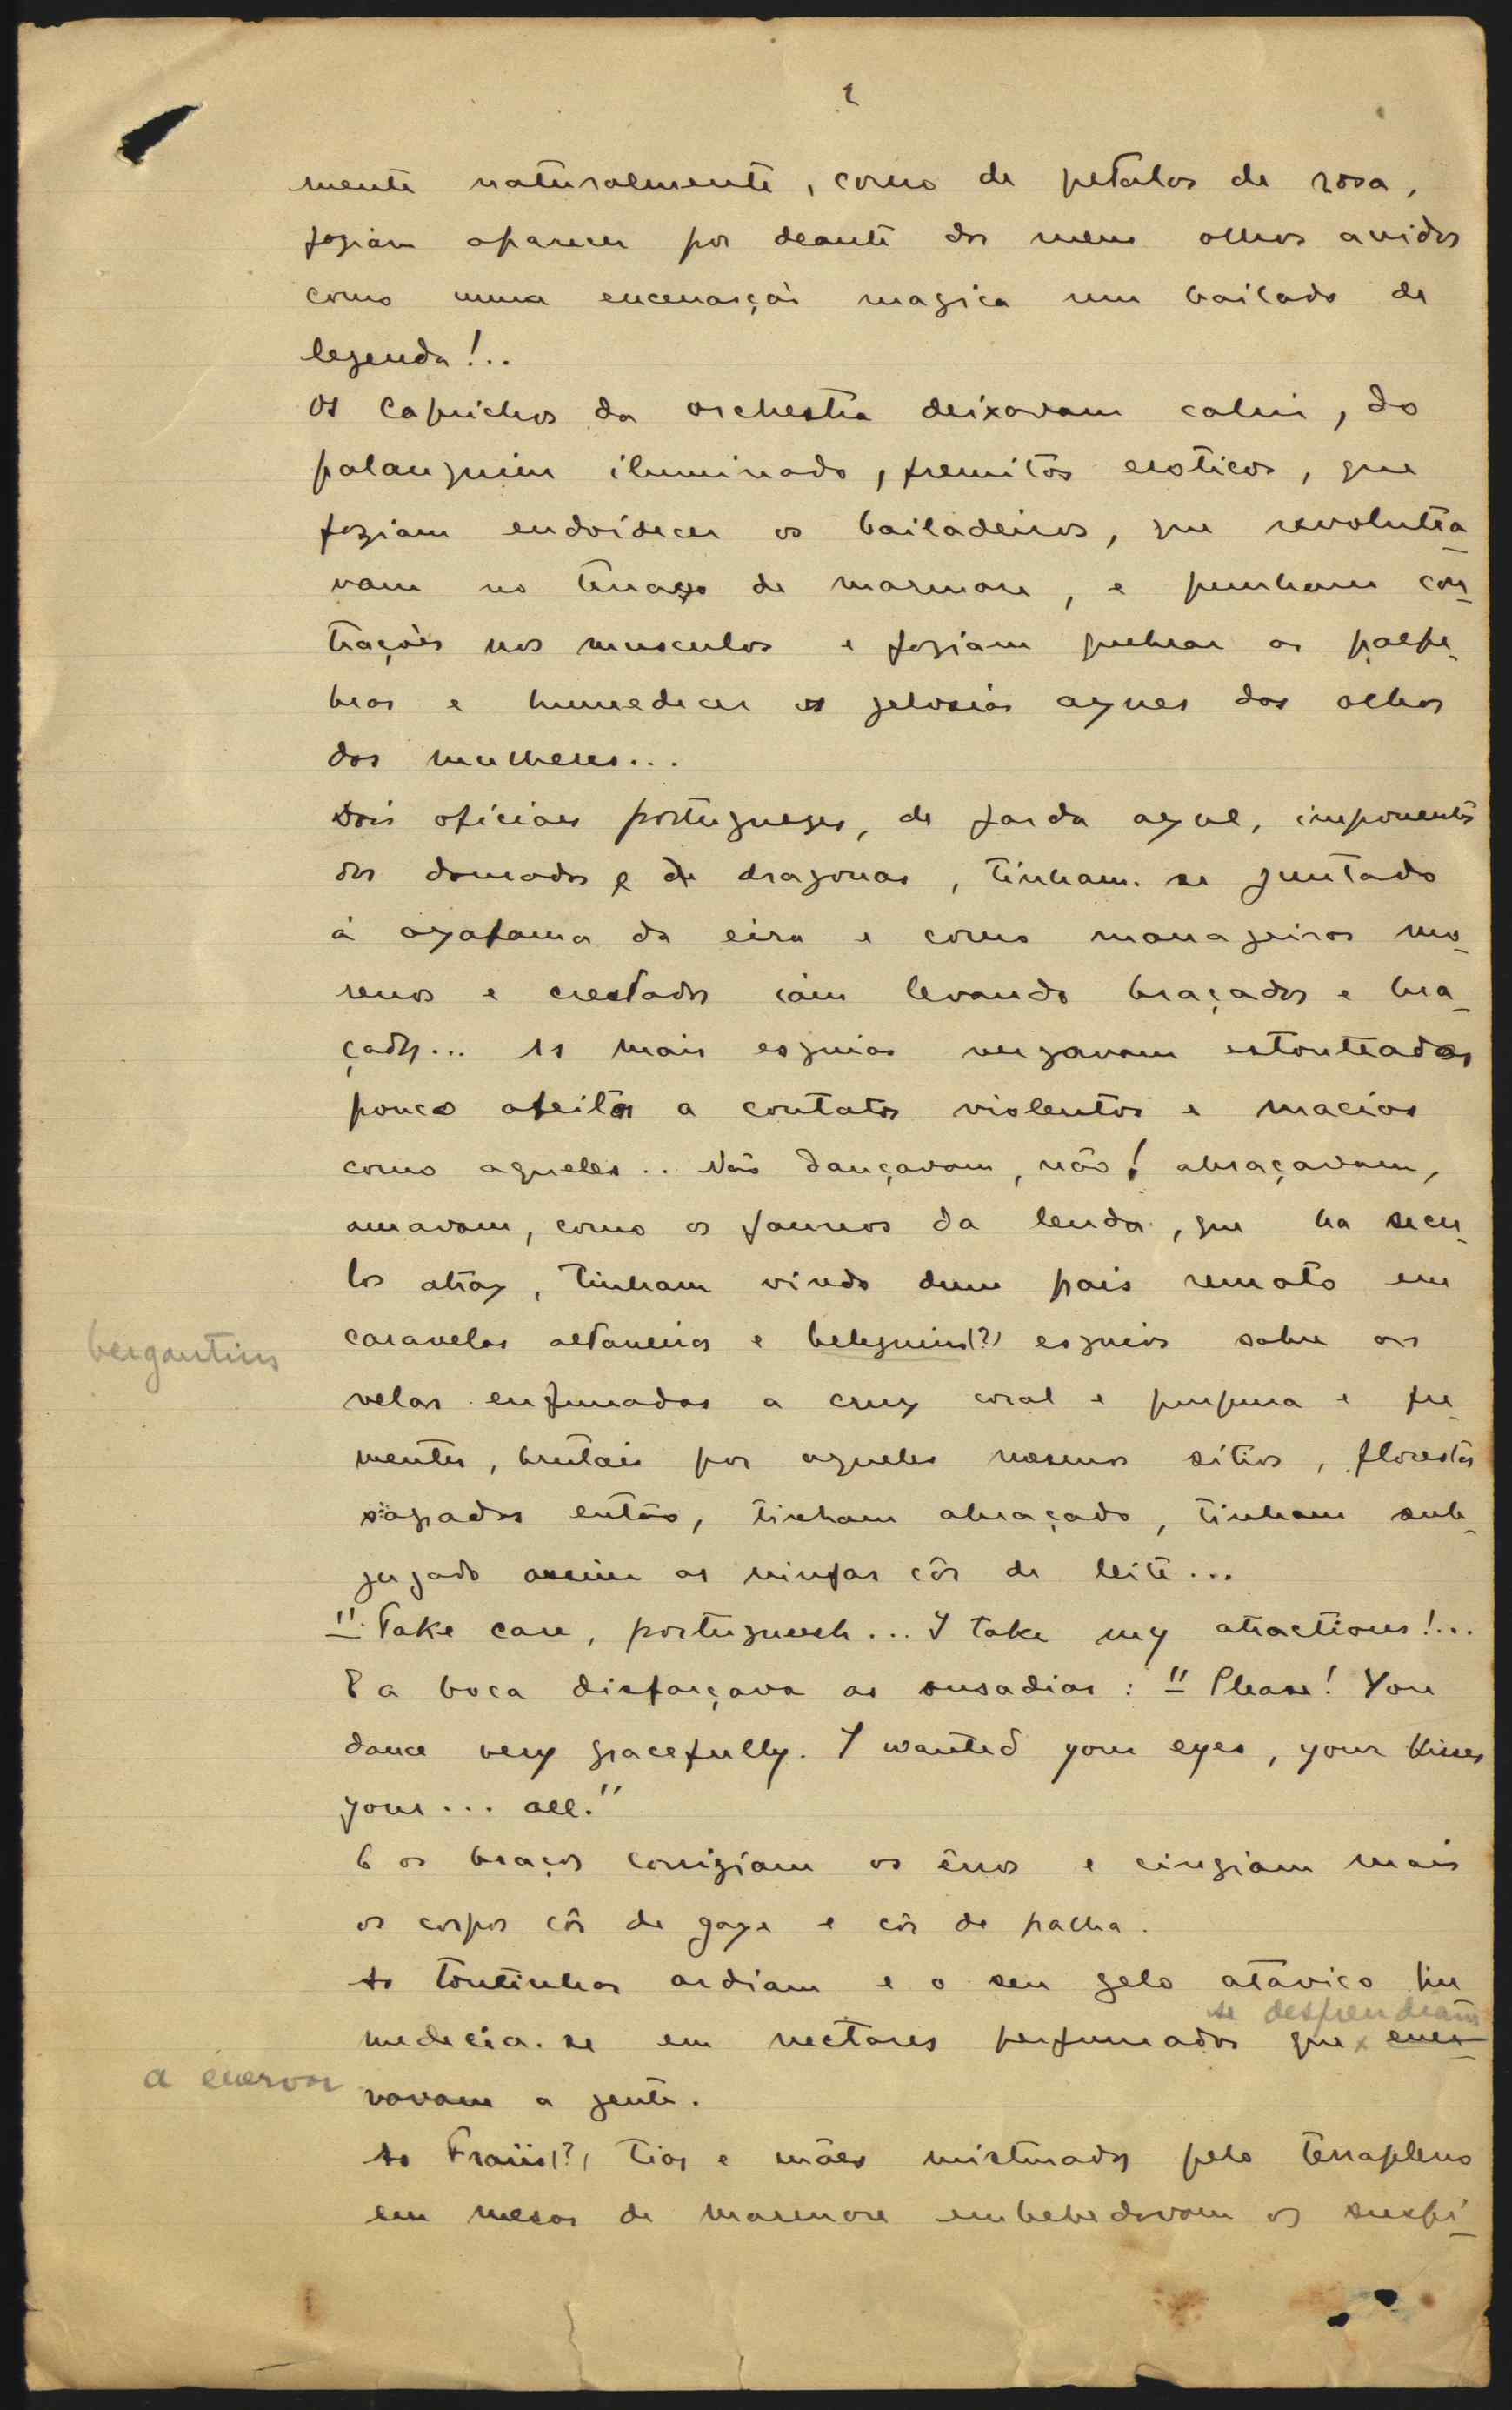 2
mente naturalmente, como de petalas de rosa,
faziam aparecer por deante dos meus olhos avidos
como numa encenação magica um bailado de
legenda!..
Os caprichos da orchestra deixavam cahir, do
palanquim iluminado, fremitos exoticos, que
faziam endoidecer os bailadeiros, que revolutea-
vam no terraço de marmore, e punham con-
trações nos musculos e faziam quebrar as palpe-
bras e humedecer as gelosias azues dos olhos
das mulheres...
Dois oficiaes portuguezes, de farda azul, imponentes
dos dourados e de dragonas, tinham-se juntado
á azafama da eira e como manageiros mo-
renos e crestados iam levando braçados e bra-
çados... As mais esguias vergavam estonteadas
pouco afeitas a contatos violentos e macios
como aqueles.. Não dançavam, não! abraçavam,
amavam, como os faunos da lenda, que ha secu-
los atraz, tinham vindo dum pais remoto em
caravelas altaneiras e beleguins(?) esguios sobre as
bergantins
velas enfunadas a cruz coral e purpura e fre-
mentes, brutais por aqueles mesmos sitios, florestas
sagradas então, tinham abraçado, tinham sub-
jugado assim as ninfas côr de leite...
"Take care, portuguesh... I take my atractions!...
E a boca disfarçava as ousadias: "Please! You
dance very gracefully. I wanted your eyes, your kisses
your... all."
E os braços corrigiam os êrros e cingiam mais
os corpos côr de gaze e côr de palha.
As tontinhas ardiam e o seu gelo atávico hu
se desprendiam
medecia-se em nectares perfumados que x ener-
a enervar
vavam a gente.
As Fraüis(?) tias e mães misturados pelo terrapleno
em mesas de marmore embebedavam os suspi-